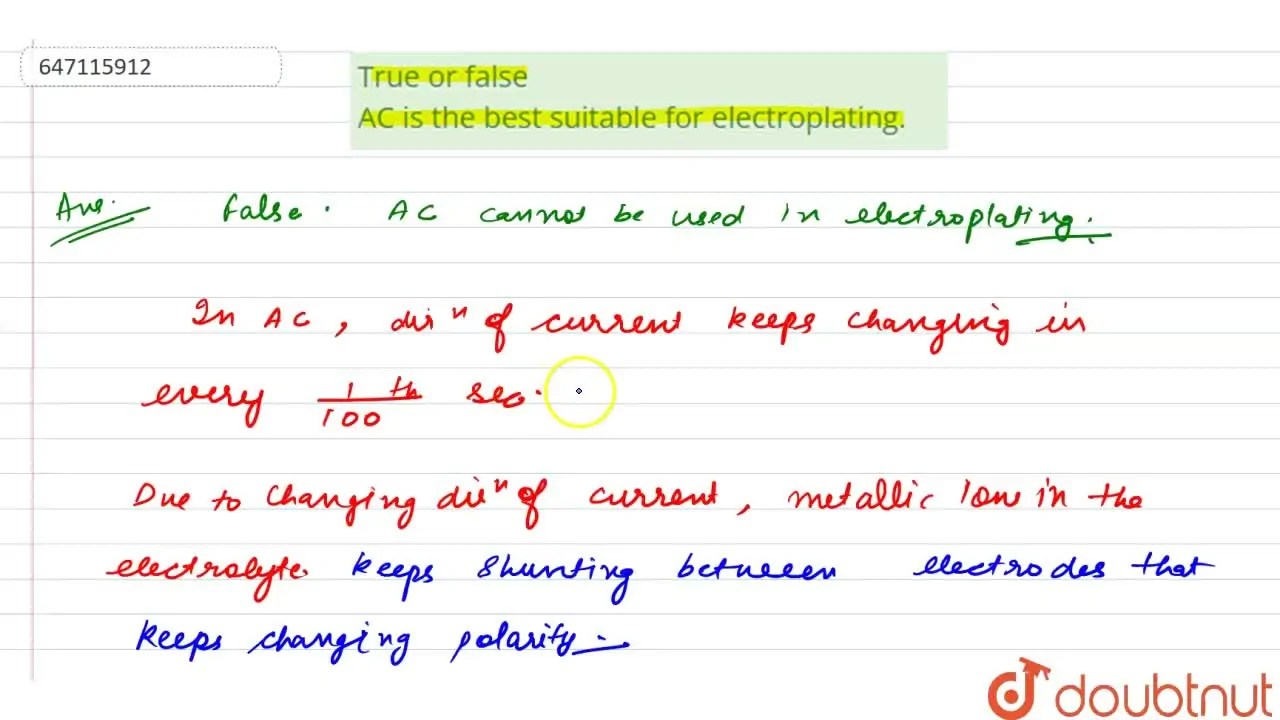 647115912
True or false
AC is the best suitable for electroplating.
Ans. False. AC cannot be used in electroplating.
In AC, dirⁿ of current keeps changing in
every 1/100 th sec.
Due to changing dirⁿ of current, metallic ions in the
electrolyte keeps shunting between electrodes that
keeps changing polarity
doubtnut